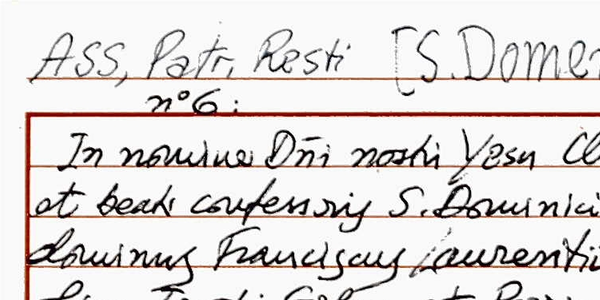 Ass, Patr, Resti [S. Domen
n° 6:
In nomine Dñi nostri Yesu Cl
et beati confessoris S. Dominici
dominus Franciscus Laurentii